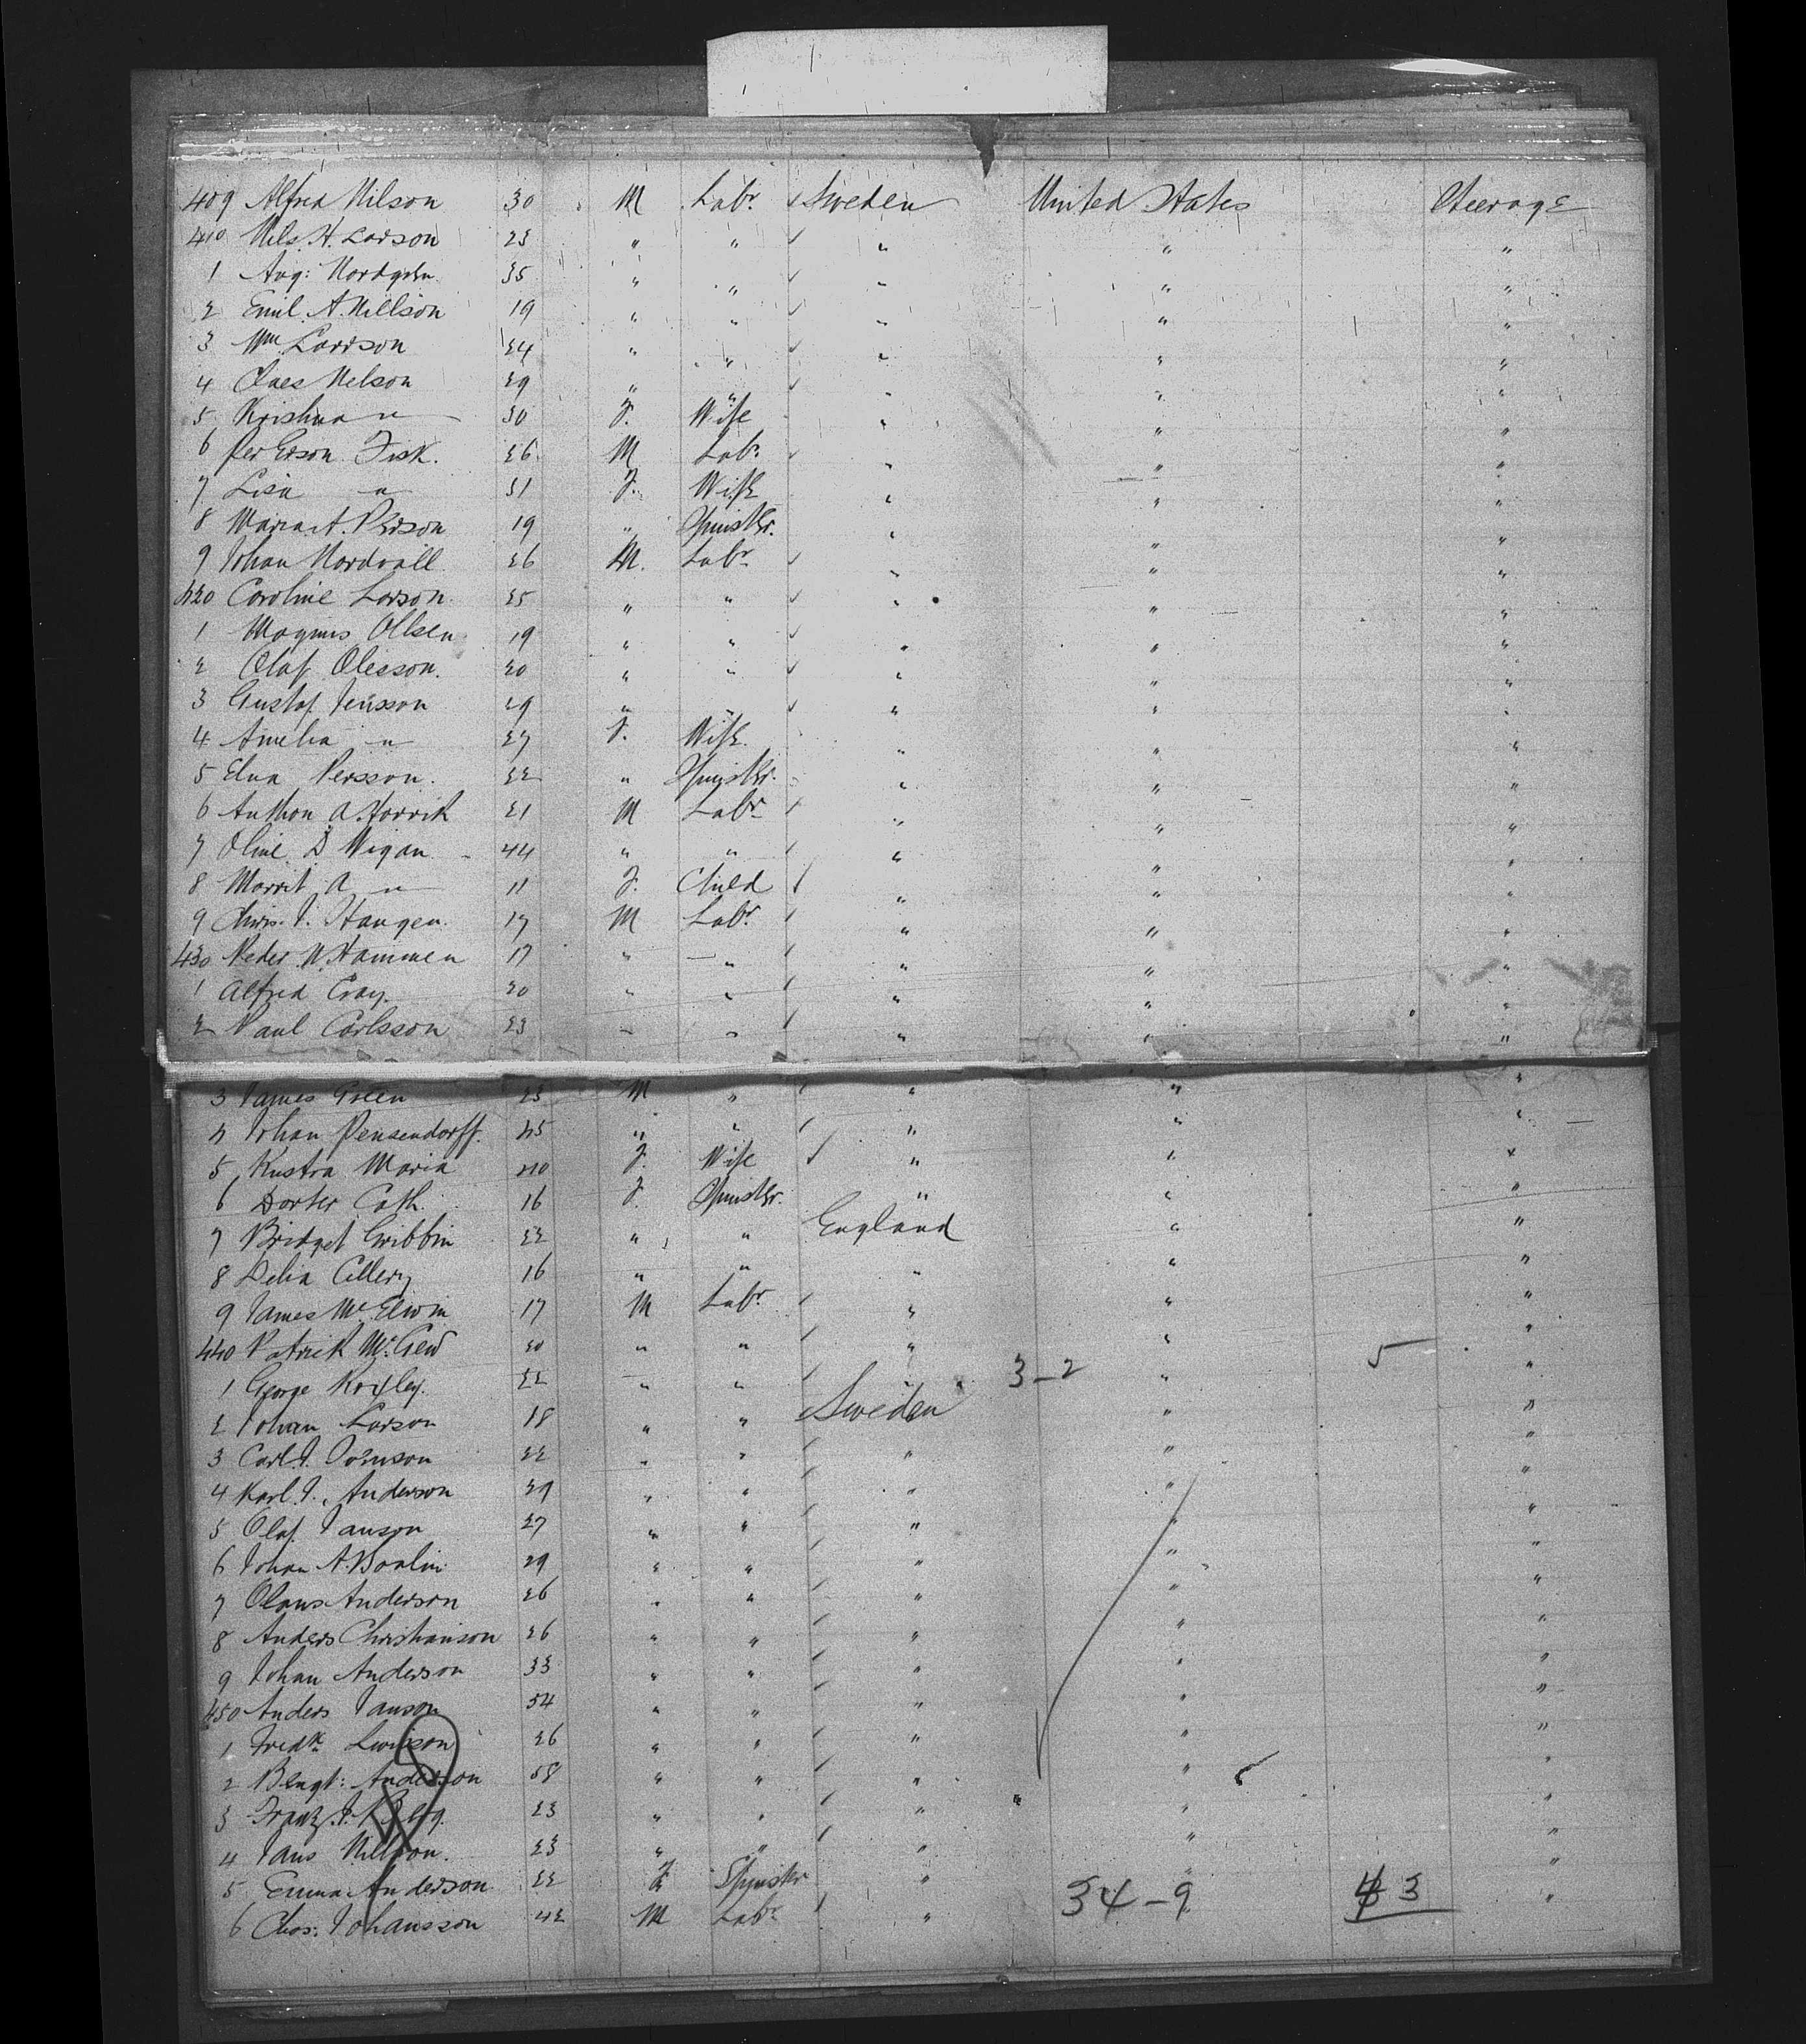 409 Alfred Nilson 30 M Labr Sweden United States Steerage
410 Nils H. Larson 23 " " " " "
1 Aug: Nordgren 35 " " " " "
2 Emil A. Nillson 19 " " " " "
3 Wm Larsson 24 " " " " "
4 Claes Nelson 29 " " " " "
5 Kristina " 30 F. Wife " " "
6 Per Erson Fisk. 26 M Labr " " "
7 Lisa " 31 F. Wife " " "
8 Maria A. Person 19 " Spinster. " " "
9 Johan Nordvall 26 M. Labr " " "
420 Caroline Larson 25 " " " " "
1 Magnus Ollsen 19 " " " " "
2 Olaf Olesson. 20 " " " " "
3 Gustaf Jensson 29 " " " " "
4 Amelia " 27 F. Wife. " " "
5 Elna Persson. 22 " Spinster. " " "
6 Anthon A. 21 M Labr " " "
7 Oline D Wigan 44 " " " " "
8 Marrit A " 11 F. Child " " "
9 Chris. J. Haugen. 17 M Labr " " "
430 Peder N. Hammen 17 " " " " "
1 Alfred Gray. 20 " " " " "
2 Paul Carlsson 23 " " " " "
3 James Green 23 M " " " "
4 Johan Pensendorff. 45 " " " " "
5 Kustra Maria 40 F. Wife " " "
6 Dorter Cath. 16 F. Spinster. " " "
7 Bridget Gribbin 22 " " England " "
8 Delia Cillery 16 " " " " "
9 James McElwin 17 M Labr " " "
440 Patrick McGew 20 " " " " 5 "
1 George Roxley. 22 " " " 3-2 " "
2 Johan Larson 18 " " Sweden " "
3 Carl J. 22 " " " " "
4 Karl J. Anderson 29 " " " " "
5 Olaf Janson 27 " " " " "
6 Johan A. Boalin 29 " " " " "
7 Olaus Anderson 26 " " " " "
8 Anders Christianson 26 " " " " "
9 Johan Anderson 33 " " " " "
450 Anders Janson 54 " " " " "
1 Fredk 26 " " " " "
2 Bengt: Anderson 58 " " " " "
3 Franz J. Berg. 23 " " " " "
4 Jans Nillson. 23 " " " " "
5 Emma Anderson 22 F Spinster " " "
6 Chas: Johansson 42 M Labr " 34-9 3 "